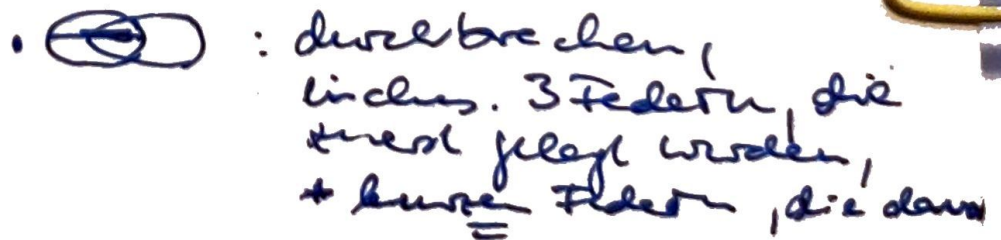 : durchbrechen,
einschl. 3 Federn, die
zuerst gelegt wurden,
+ kurzen Federn, die dann